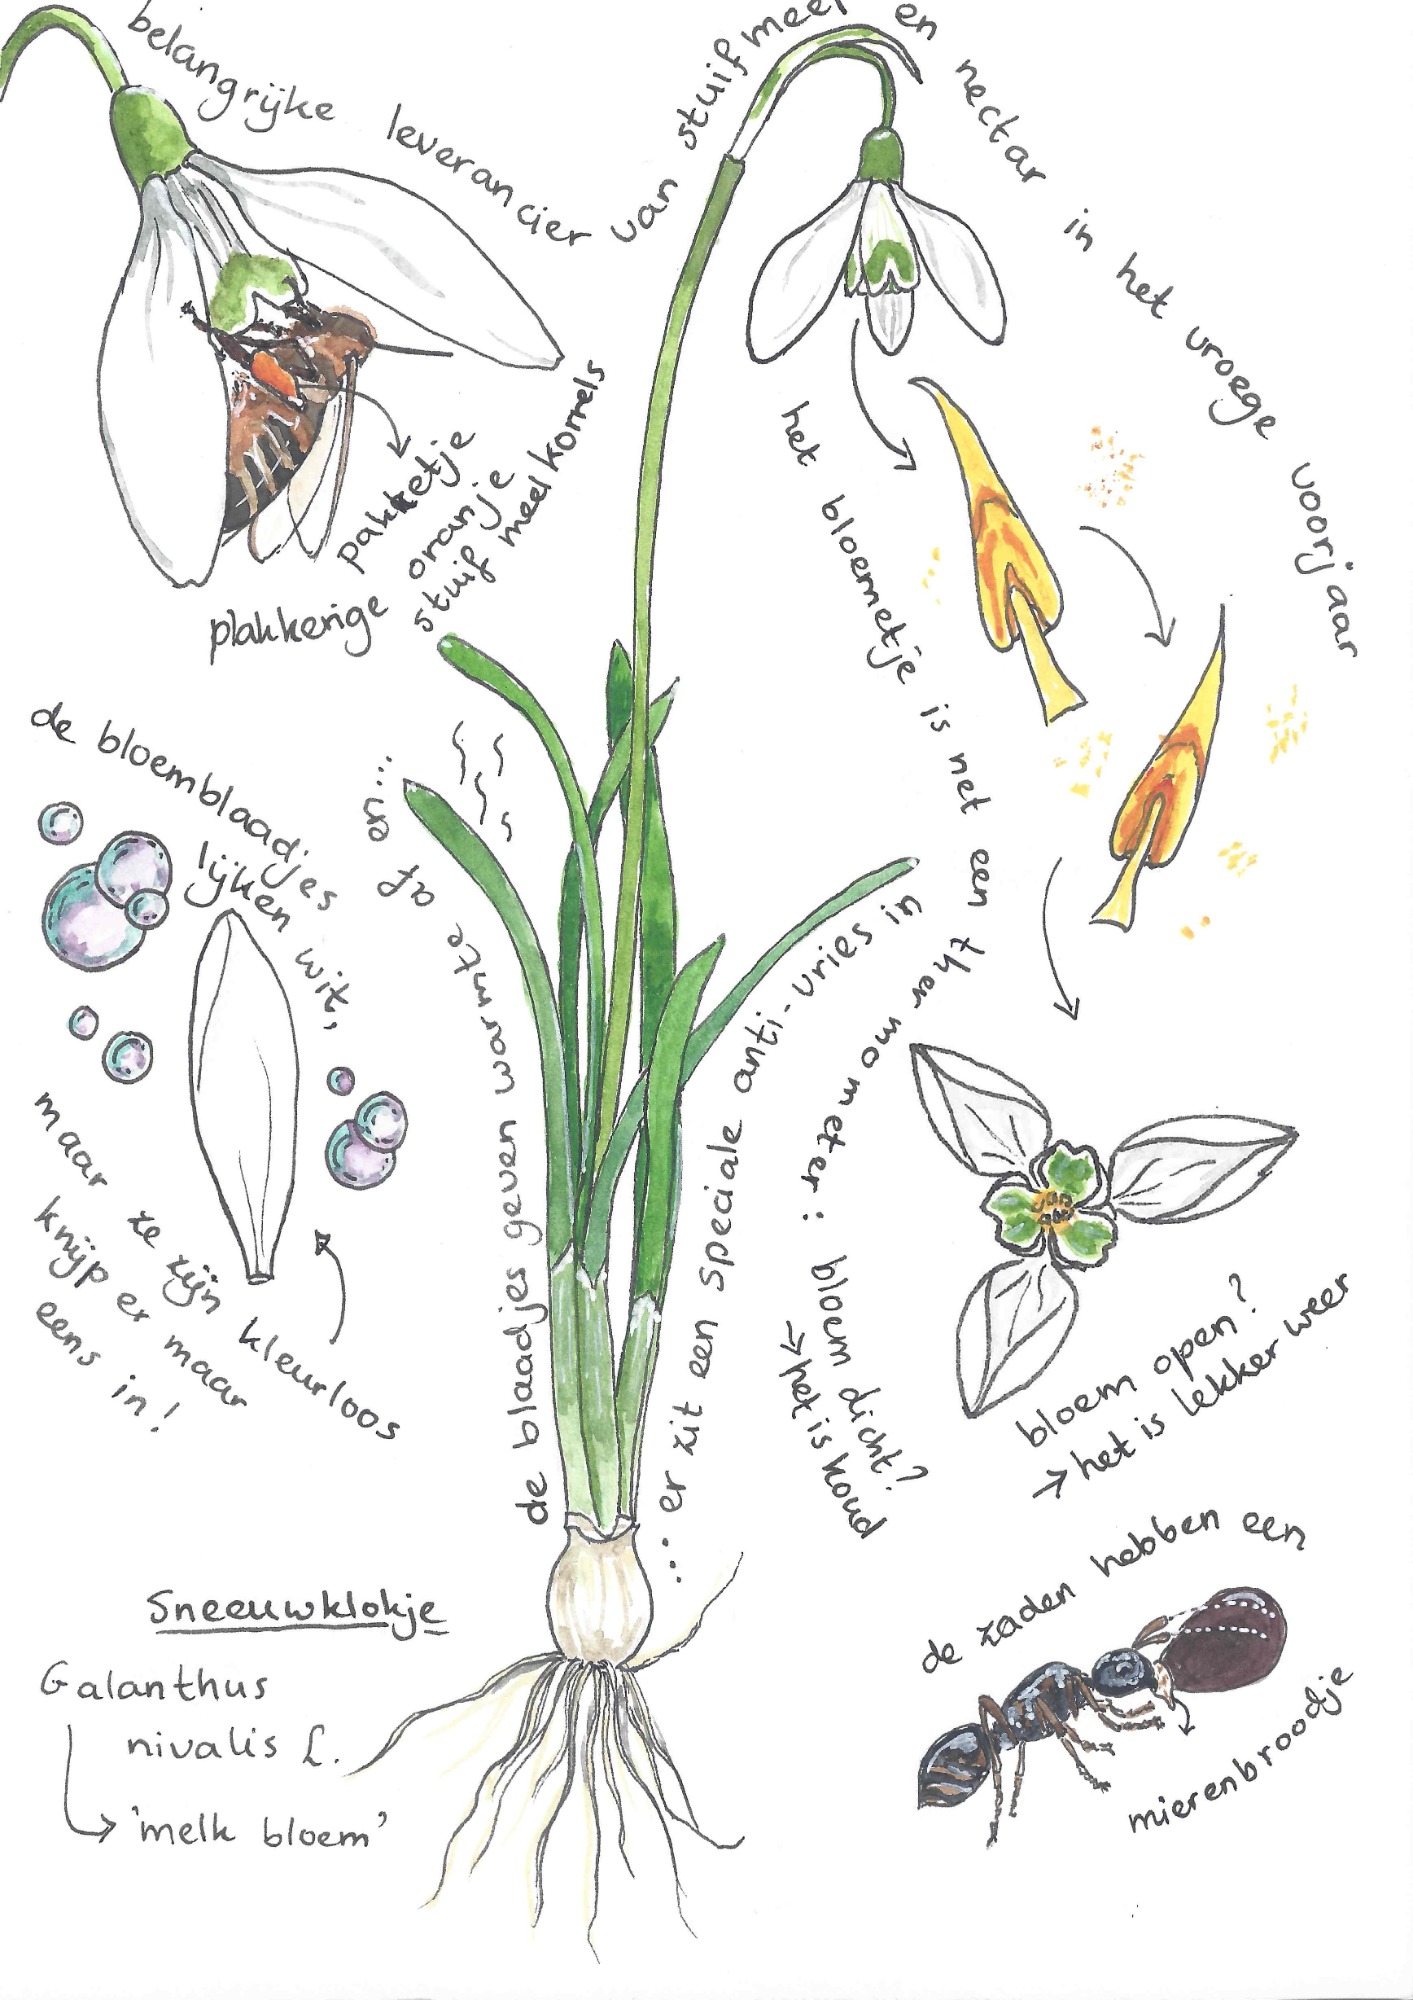 belangrijke leverancier van stuifmeel en nectar in het vroege voorjaar
pakketje
plakkerige oranje
stuifmeelkorrels
het bloemetje is net een thermometer:
bloem dicht?
→ het is koud
bloem open?
→ het is lekker weer
de bloemblaadjes
lijken wit,
maar ze zijn kleurloos
knijp er maar
eens in!
de blaadjes geven warmte af en...
... er zit een speciale anti-vries in
Sneeuwklokje
Galanthus
nivalis L.
'melk bloem'
de zaden hebben een
mierenbroodje